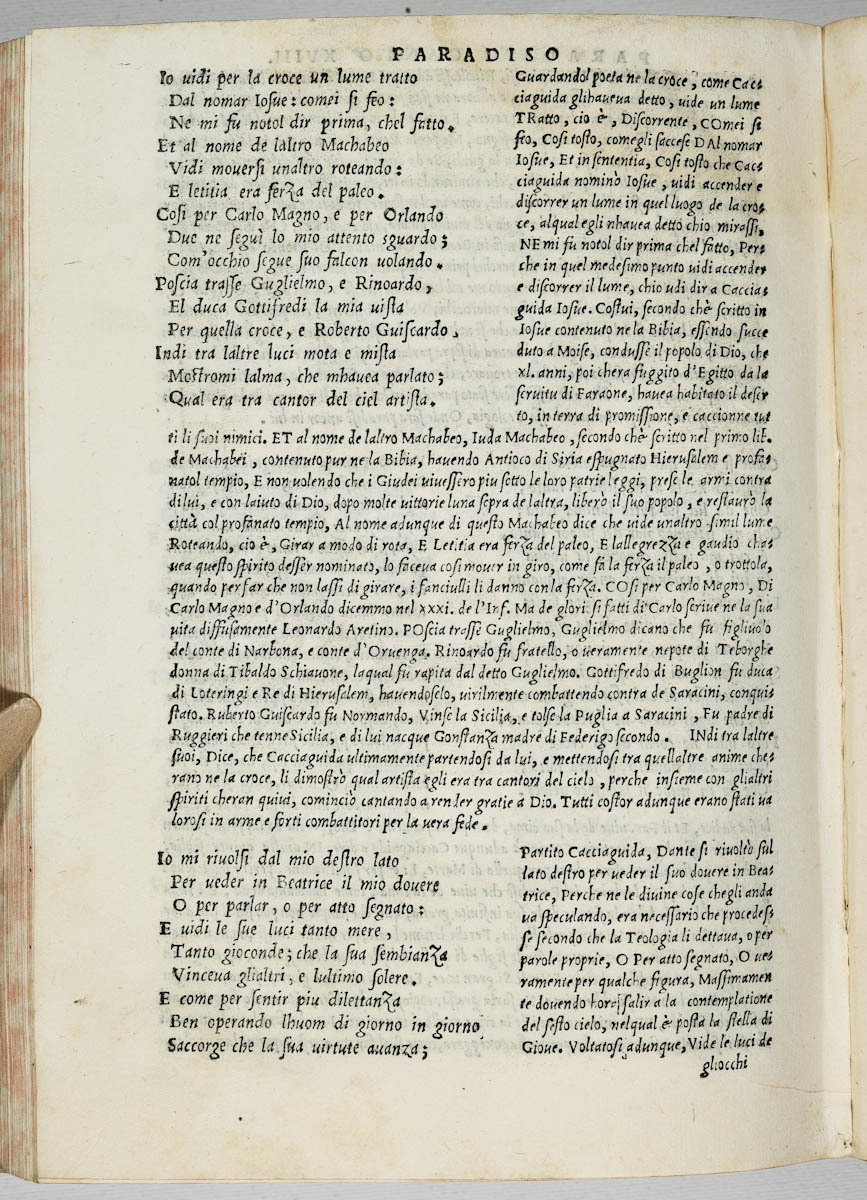 PARADISO
Io uidi per la croce un lume tratto
Dal nomar Iosue: comei si feo:
Ne mi fu notol dir prima, chel fatto.
Et al nome de laltro Machabeo
Vidi mouersi unaltro roteando:
E letitia era ferza del paleo.
Cosi per Carlo Magno, e per Orlando
Due ne seguì lo mio attento sguardo;
Com'occhio segue suo falcon uolando.
Poscia trasse Guglielmo, e Rinoardo,
El duca Gottifredi la mia uista
Per quella croce, e Roberto Guiscardo.
Indi tra laltre luci mota e mista
Mostromi lalma, che mhauea parlato;
Qual era tra cantor del ciel artista.
Guardandol poeta ne la croce, come Cac-
ciaguida glihaueua detto, uide un lume
TRatto, cio è, Discorrente, COmei si
feo, Cosi tosto, comegli saccese DAl nomar
Iosue, Et in sententia, Cosi tosto che Cac-
ciaguida nominò Iosue, uidi accender e
discorrer un lume in quel luogo de la cro-
ce, alqual egli nhauea detto chio mirassi,
NE mi fu notol dir prima chel fatto, Per-
che in quel medesimo punto uidi accender
e discorrer il lume, chio udi dir a Caccia-
guida Iosue. Costui, secondo chè scritto in
Iosue contenuto ne la Bibia, essendo succe
duto a Moise, condusse il popolo di Dio, che
xl. anni, poi chera fuggito d'Egitto da la
seruitu di Faraone, hauea habitato il deser
to, in terra di promissione, e caccionne tut
ti li suoi nimici. ET al nome de laltro Machabeo, Iuda Machabeo, secondo chè scritto nel primo lib.
de Machabei, contenuto pur ne la Bibia, hauendo Antioco di Siria espugnato Hierusalem e profa-
natol tempio, E non uolendo che i Giudei uiuessero piu sotto le loro patrie leggi, prese le armi contra
di lui, e con laiuto di Dio, dopo molte uittorie luna sopra de laltra, liberò il suo popolo, e restaurò la
città col profanato tempio, Al nome adunque di questo Machabeo dice che uide unaltro simil lume
Roteando, cio è, Girar a modo di rota, E Letitia era ferza del paleo, E lallegrezza e gaudio cha-
uea questo spirito desser nominato, lo faceua cosi mouer in giro, come fà la ferza il paleo, o trottola,
quando per far che non lassi di girare, i fanciulli li danno con la ferza. COsi per Carlo Magno, Di
Carlo Magno e d'Orlando dicemmo nel xxxi. de l'Inf. Ma de glori si fatti di Carlo scriue ne la sua
uita diffusamente Leonardo Aretino. POscia trasse Guglielmo, Guglielmo dicano che fu figliuolo
del conte di Narbona, e conte d'Oruenga. Rinoardo fu fratello, o ueramente nepote di Teborghe
donna di Tibaldo Schiauone, laqual fu rapita dal detto Guglielmo. Gottifredo di Buglion fu duca
di Loteringi e Re di Hierusalem, hauendoselo, uirilmente combattendo contra de Saracini, conqui
stato. Ruberto Guiscardo fu Normando, Vinse la Sicilia, e tolse la Puglia a Saracini, Fu padre di
Ruggieri che tenne Sicilia, e di lui nacque Gonstanza madre di Federigo secondo. INdi tra laltre
suoi, Dice, che Cacciaguida ultimamente partendosi da lui, e mettendosi tra quellaltre anime che-
rano ne la croce, li dimostrò qual artista egli era tra cantori del cielo, perche insieme con glialtri
spiriti cheran quiui, cominciò cantando a render gratie à Dio. Tutti costor adunque erano stati ua
lorosi in arme e forti combattitori per la uera fede.
Io mi riuolsi dal mio destro lato
Per ueder in Beatrice il mio douere
O per parlar, o per atto segnato:
E uidi le sue luci tanto mere,
Tanto gioconde; che la sua sembianza
Vinceua glialtri, e lultimo solere.
E come per sentir piu dilettanza
Ben operando lhuom di giorno in giorno
Saccorge che la sua uirtute auanza;
Partito Cacciaguida, Dante si riuoltò sul
lato destro per ueder il suo douere in Bea-
trice, Perche ne le diuine cose chegli anda
ua speculando, era necessario che procedes-
se secondo che la Teologia li dettaua, o per
parole proprie, O Per atto segnato, O ue-
ramente per qualche figura, Massimamen
te douendo hora salir a la contemplatione
del sesto cielo, nelqual è posta la stella di
Gioue. Voltatosi adunque, Vide le luci de
gliocchi